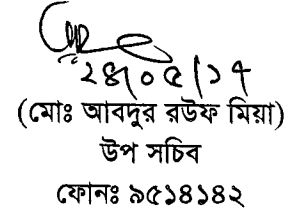 ২৪/০৫/১৭
(মোঃ আবদুর রউফ মিয়া)
উপ সচিব
ফোনঃ ৯৫১৪১৪২